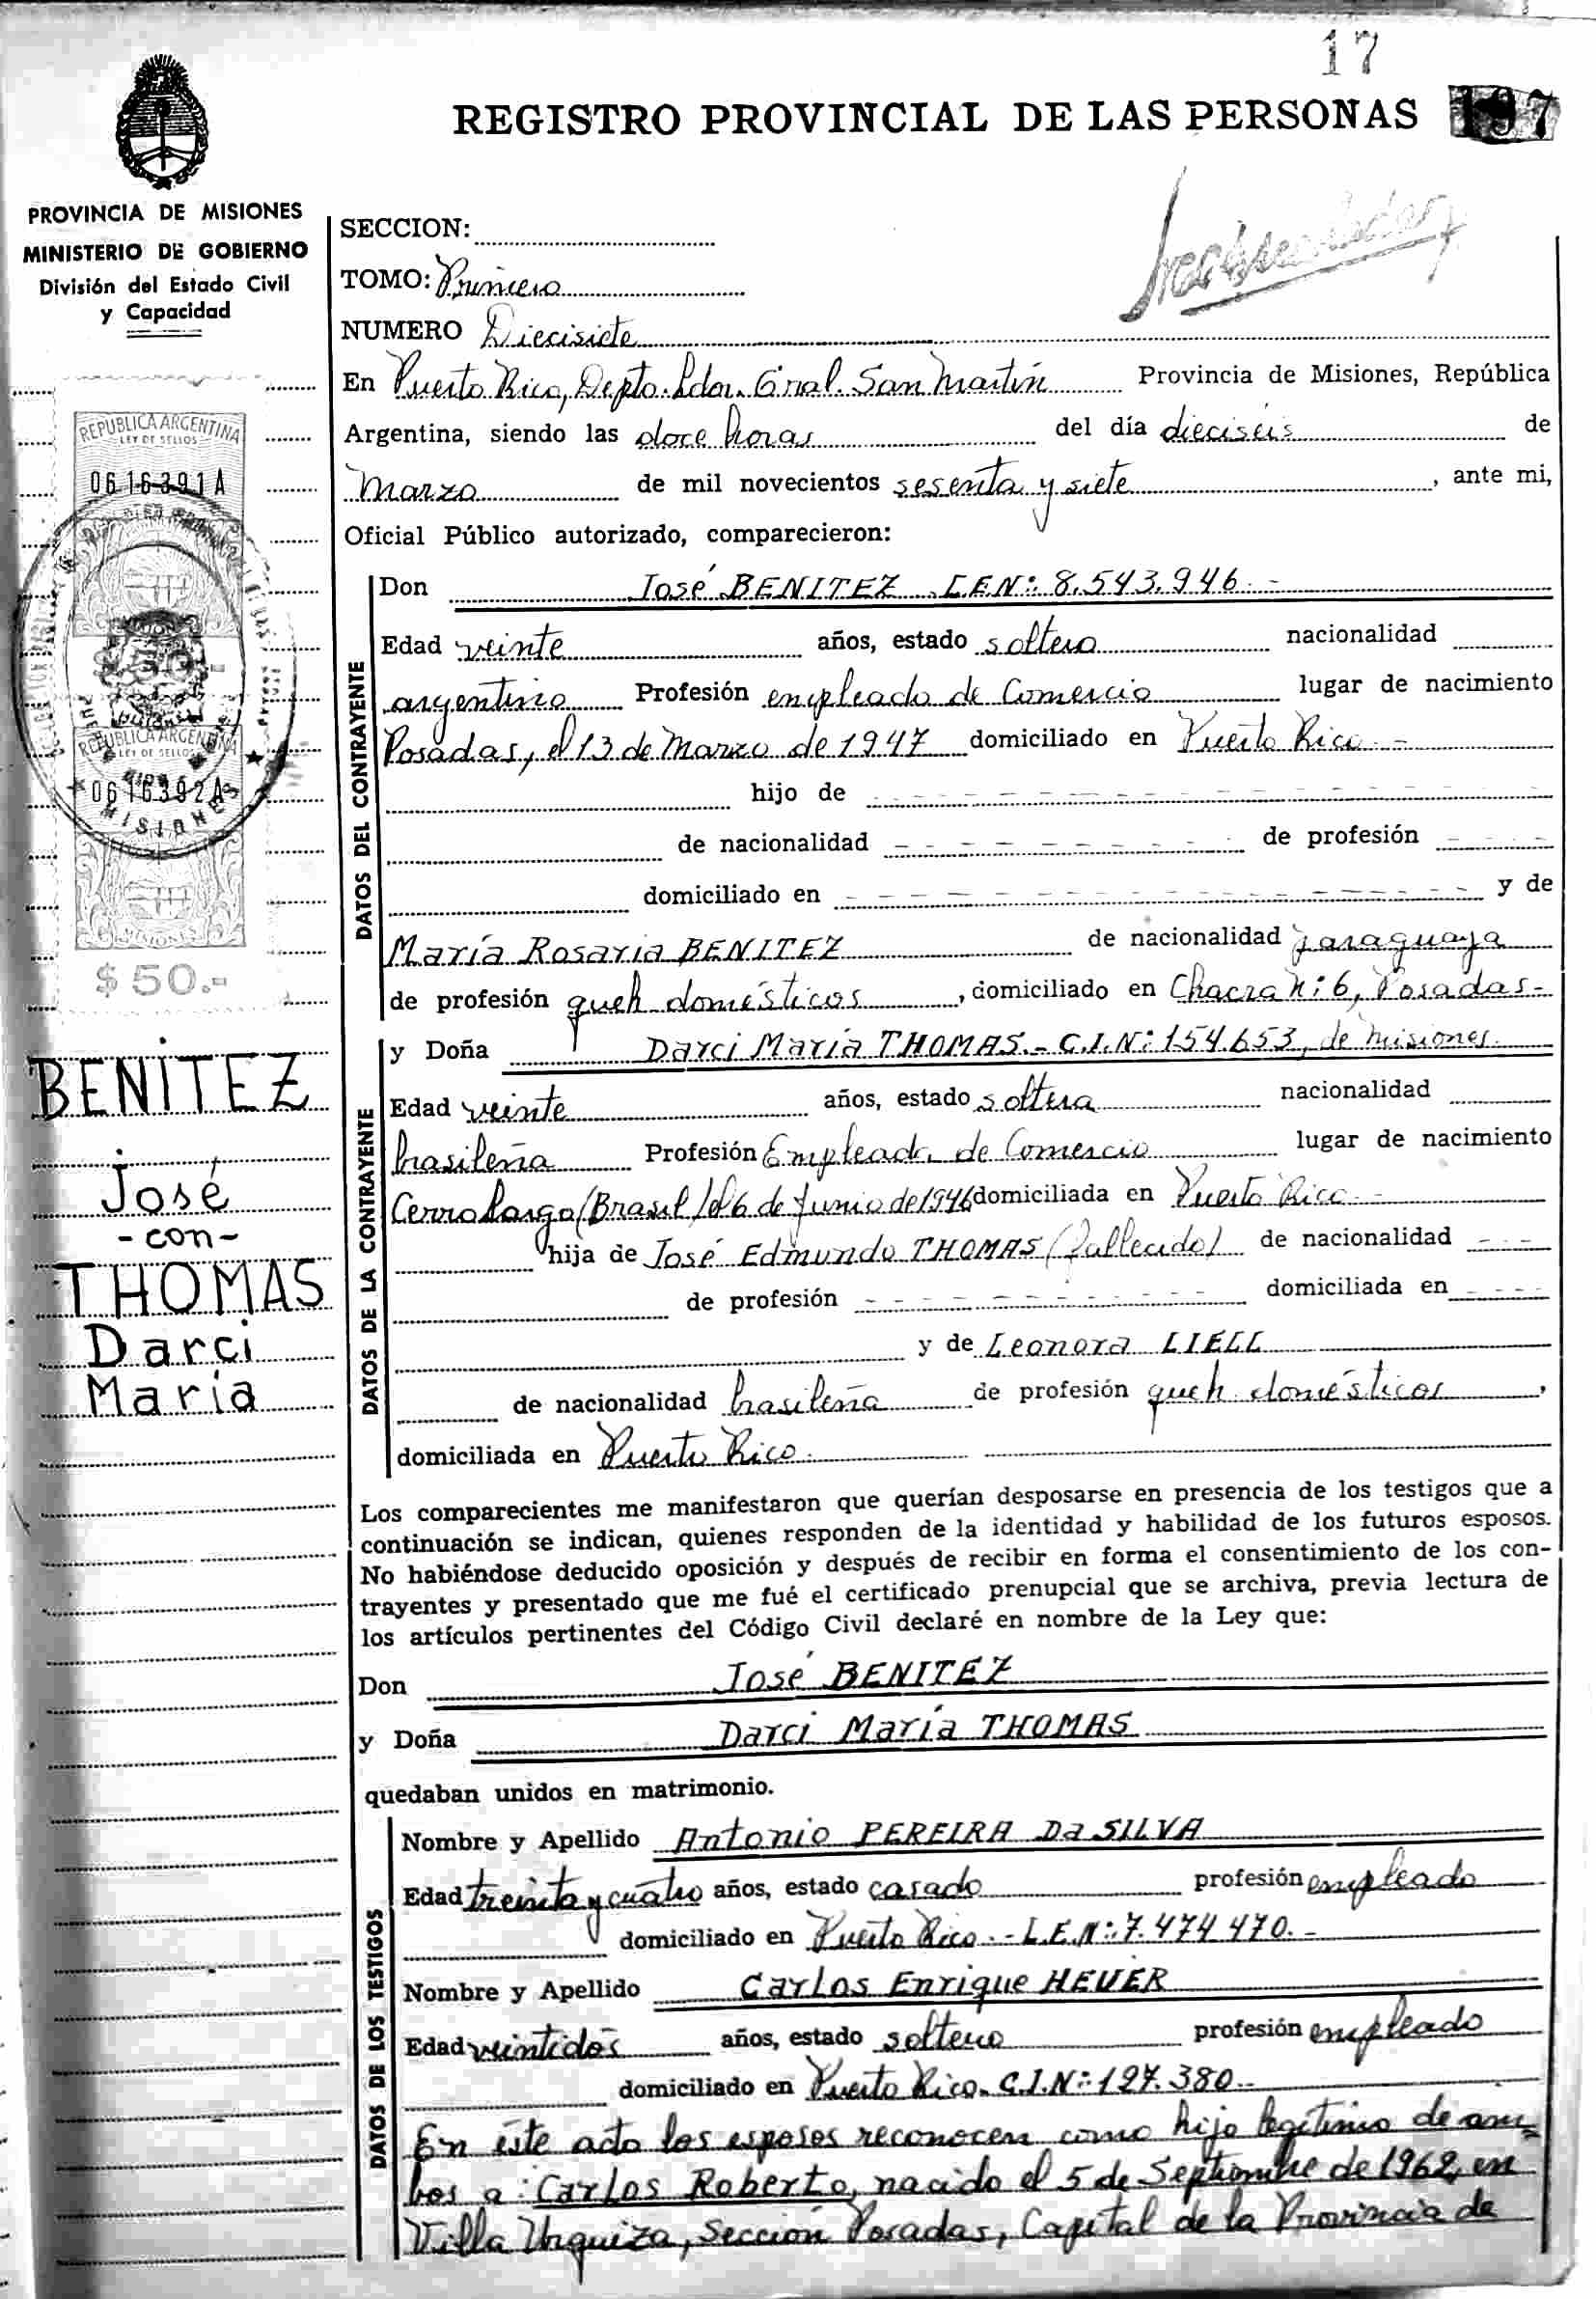 17
REGISTRO PROVINCIAL DE LAS PERSONAS 197
PROVINCIA DE MISIONES
MINISTERIO DE GOBIERNO
División del Estado Civil
y Capacidad
SECCION:
TOMO: Primero
NUMERO Diecisiete
En Puerto Rico, Depto. Ldor. Gral. San Martín Provincia de Misiones, República
Argentina, siendo las doce horas del día dieciséis de
Marzo de mil novecientos sesenta y siete, ante mi,
Oficial Público autorizado, comparecieron:
REPUBLICA ARGENTINA
LEY DE SELLOS
0616391A
REPUBLICA ARGENTINA
LEY DE SELLOS
0616392A
MISIONES
MISIONES
$ 50.-
BENITEZ
José
-con-
THOMAS
Darci
María
DATOS DEL CONTRAYENTE
Don José BENITEZ L.E.N: 8.543.946.-
Edad veinte años, estado soltero nacionalidad
argentino Profesión empleado de Comercio lugar de nacimiento
Posadas, el 13 de Marzo de 1947 domiciliado en Puerto Rico.-
hijo de
de nacionalidad de profesión
domiciliado en y de
María Rosaria BENITEZ de nacionalidad paraguaya
de profesión queh. domésticos, domiciliado en Chacra N: 6, Posadas-
DATOS DE LA CONTRAYENTE
y Doña Darci María THOMAS - C.I.N: 154.653, de Misiones.
Edad veinte años, estado soltera nacionalidad
brasileña Profesión Empleada de Comercio lugar de nacimiento
Cerro Largo (Brasil) el 6 de Junio de 1946 domiciliada en Puerto Rico.-
hija de José Edmundo THOMAS (fallecido) de nacionalidad
de profesión domiciliada en
y de Leonora LIELL
de nacionalidad brasileña de profesión queh. domésticos,
domiciliada en Puerto Rico.
Los comparecientes me manifestaron que querían desposarse en presencia de los testigos que a
continuación se indican, quienes responden de la identidad y habilidad de los futuros esposos.
No habiéndose deducido oposición y después de recibir en forma el consentimiento de los con-
trayentes y presentado que me fué el certificado prenupcial que se archiva, previa lectura de
los artículos pertinentes del Código Civil declaré en nombre de la Ley que:
Don José BENITEZ
y Doña Darci María THOMAS
quedaban unidos en matrimonio.
DATOS DE LOS TESTIGOS
Nombre y Apellido Antonio PEREIRA Da SILVA
Edad treinta y cuatro años, estado casado profesión empleado
domiciliado en Puerto Rico.- L.E.N: 7.474.470.-
Nombre y Apellido Carlos Enrique HEUER
Edad veintidos años, estado soltero profesión empleado
domiciliado en Puerto Rico. C.I.N: 127.380.-
En éste acto los esposos reconocen como hijo legítimo de am-
bos a: Carlos Roberto, nacido el 5 de Septiembre de 1962, en
Villa Urquiza, Sección Posadas, Capital de la Provincia de